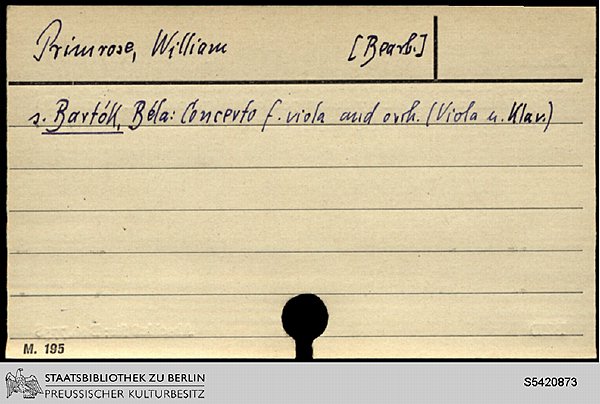 Primrose, William [Bearb.]
s. Bartók, Béla: Concerto f. viola and orch. (Viola u. Klav.)
M. 195
STAATSBIBLIOTHEK ZU BERLIN
PREUSSISCHER KULTURBESITZ
S5420873